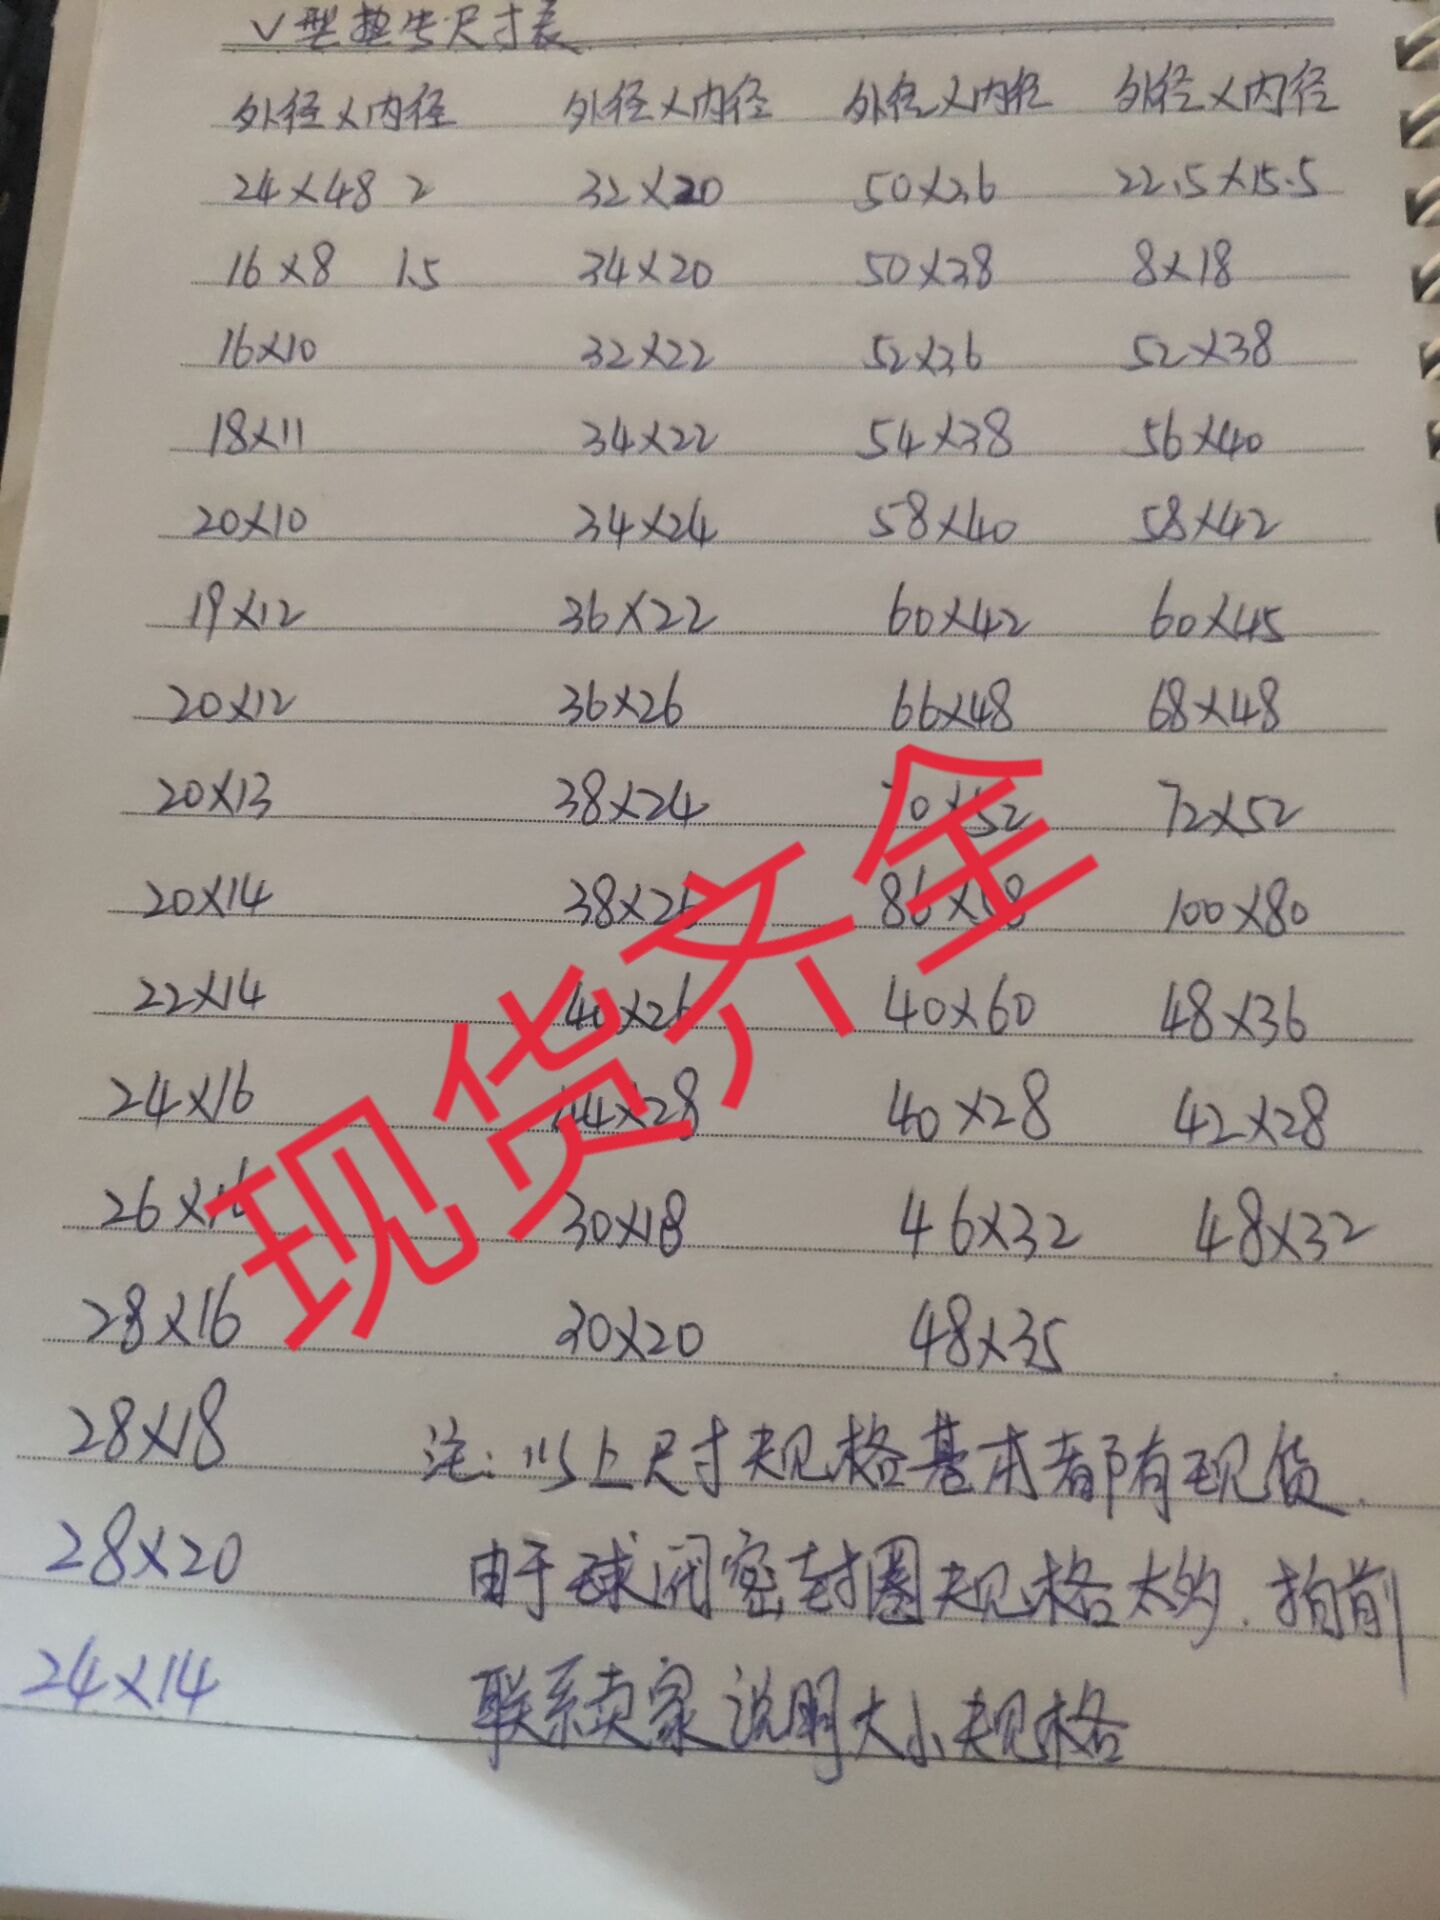 V型垫片尺寸表
外径X内径 外径X内径 外径X内径 外径X内径
24X48 2 32X20 50X36 22.5X15.5
16X8 1.5 34X20 50X38 8X18
16X10 32X22 52X36 52X38
18X11 34X22 54X38 56X40
20X10 34X24 58X40 58X42
19X12 36X22 60X42 60X45
20X12 36X26 66X48 68X48
20X13 38X24 70X52 72X52
20X14 38X26 100X80
22X14 40X26 40X60 48X36
24X16 44X28 40X28 42X28
26X16 30X18 46X32 48X32
28X16 30X20 48X35
28X18 注:以上尺寸规格基本都有现货.
28X20 由于球阀密封圈规格太多.拍前
24X14 联系卖家说明大小规格
现货齐全